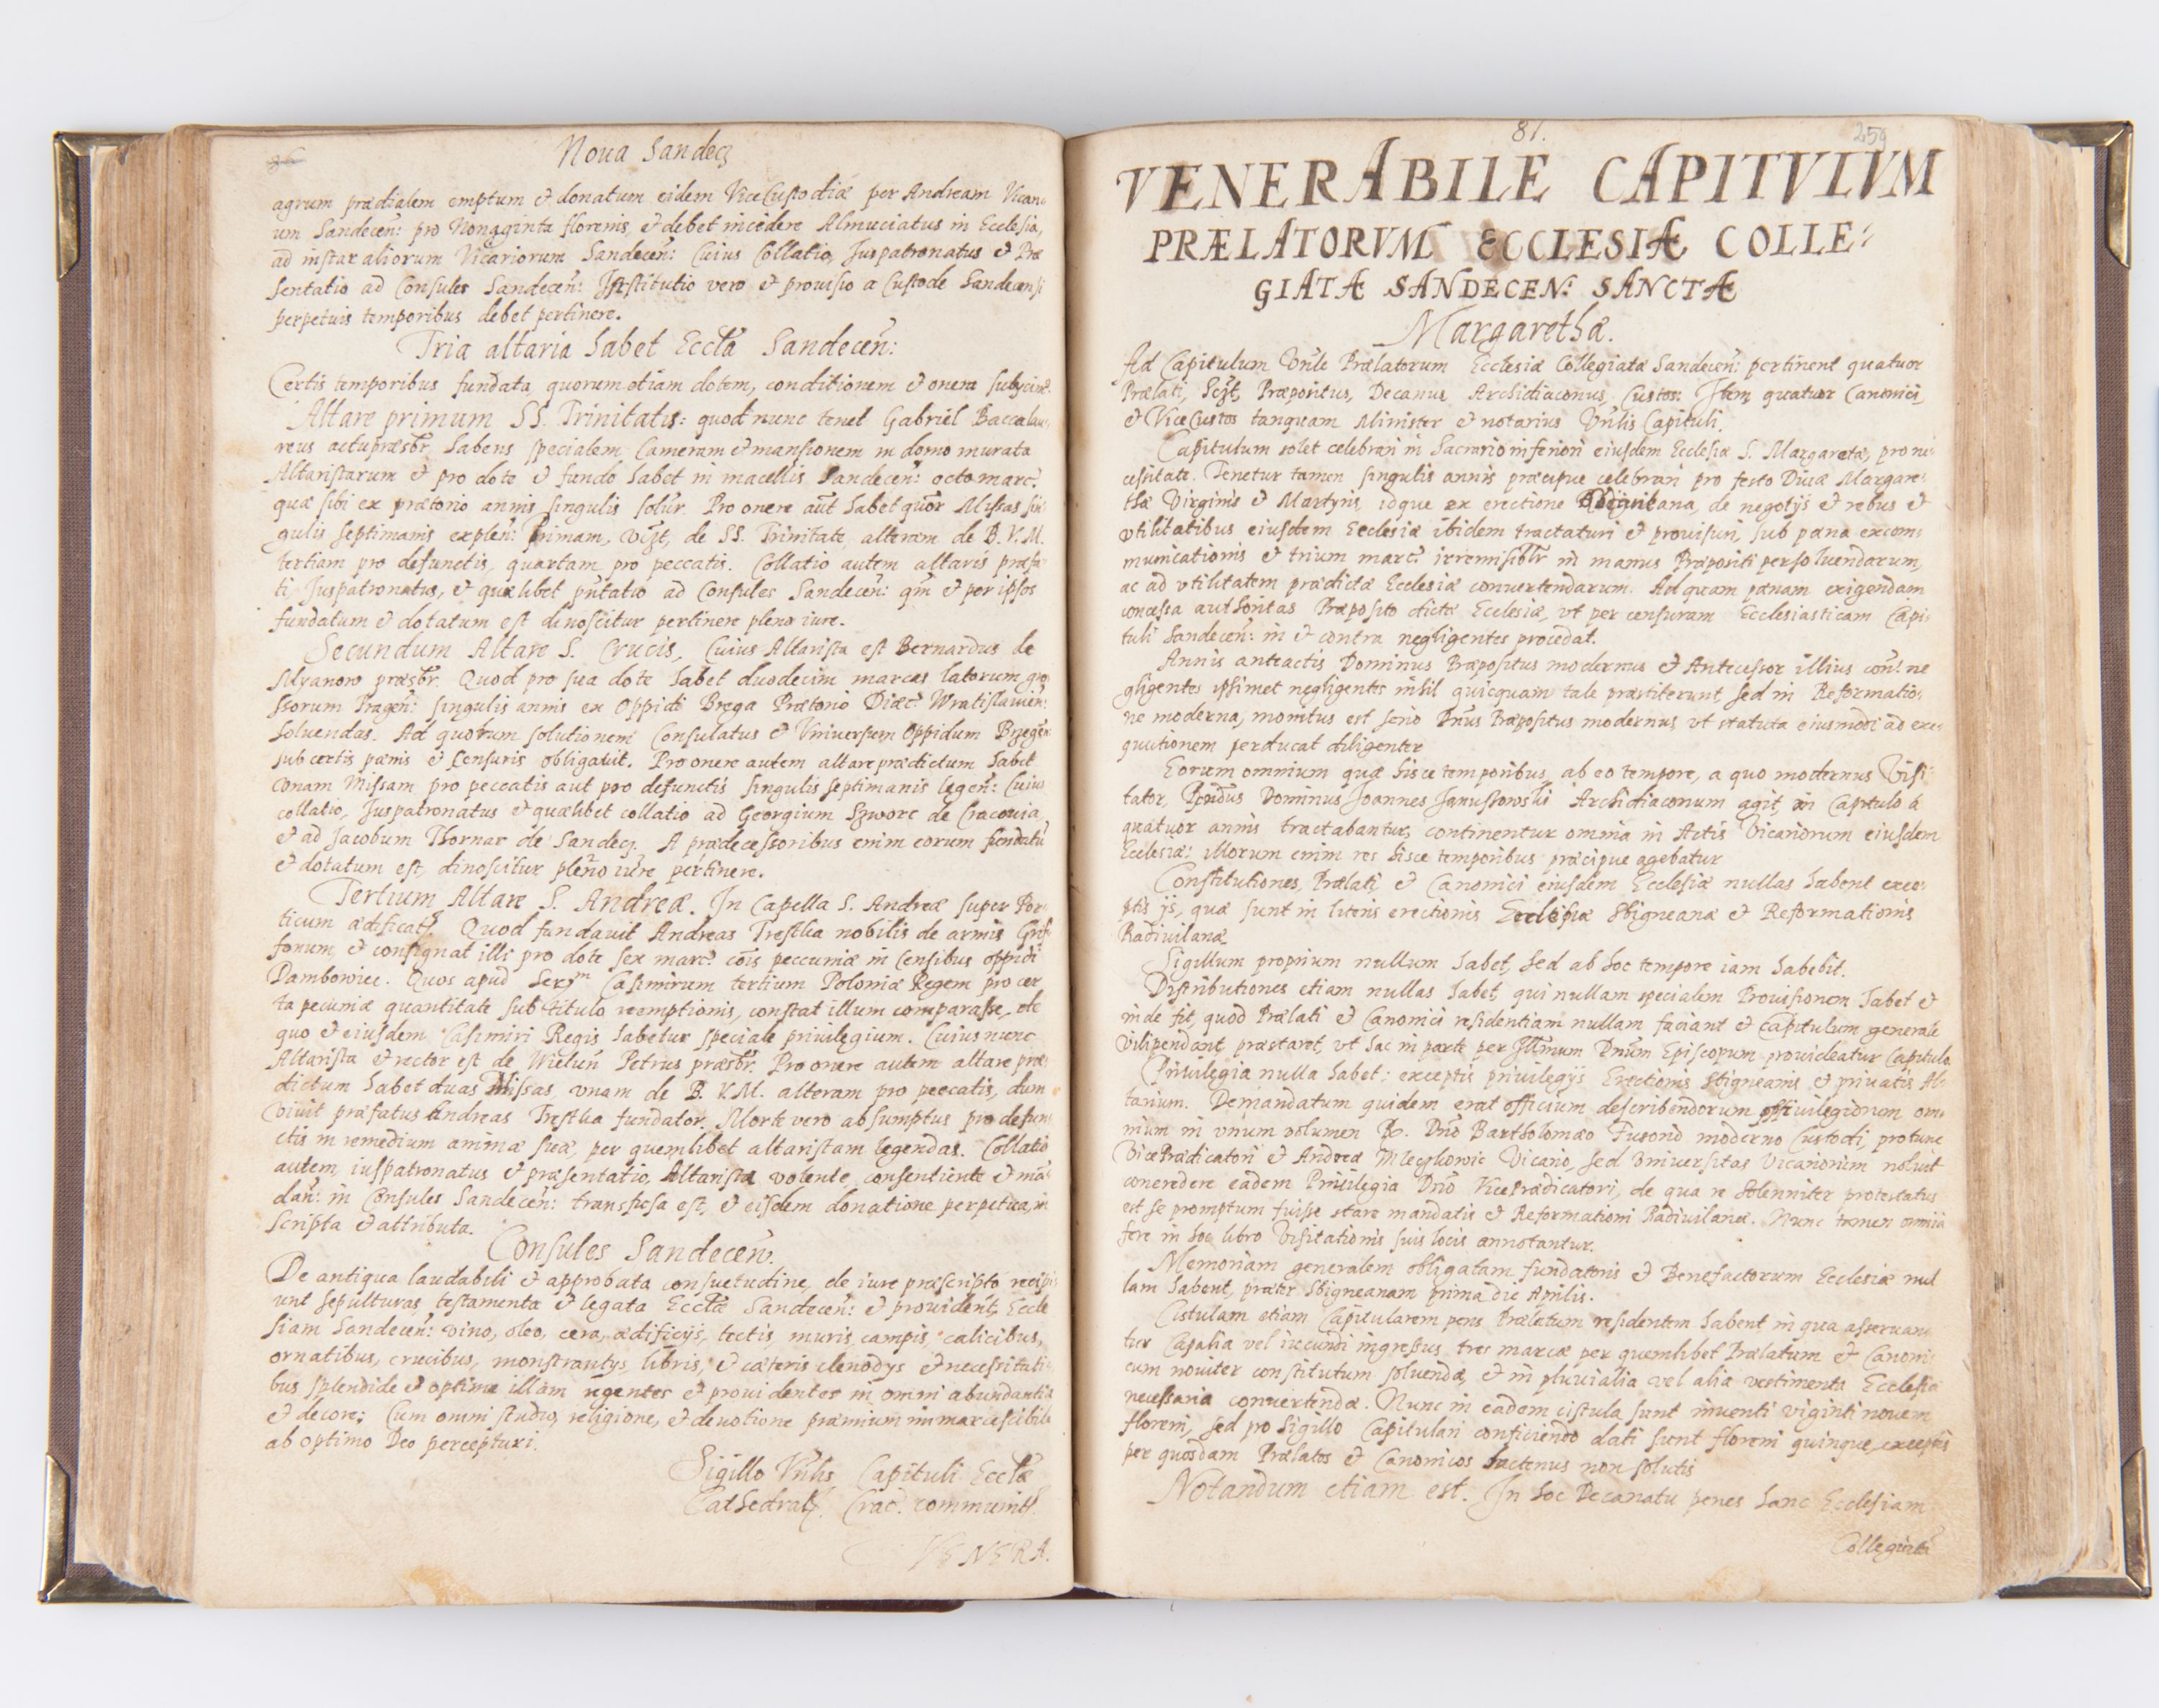 Noua Sandecz
agrum prædialem emptum & donatum eidem ViceCustodiæ per Andream Vicari
um Sandecen̄: pro Nonaginta florenis, & debet incedere Almuciatus in Ecclesia,
ad instar aliorum Vicariorum Sandecen̄: Cuius Collatio, Juspatronatus & Præ
sentatio ad Consules Sandecen̄: Institutio vero & prouisio a Custode Sandecensi
perpetuis temporibus debet pertinere.
Tria altaria habet Eccl̄a Sandecen̄:
Certis temporibus fundata, quorum etiam dotem, conditionem & onera
Altare primum SS. Trinitatis: quod nunc tenet Gabriel Baccalau
reus actu præsbr. habens specialem Cameram & mansionem in domo murata
Altaristarum & pro dote & fundo habet in macellis Sandecen̄: octo marc:
quæ sibi ex prætorio annis singulis solūr. Pro onere aūt habet quōr Missas sin
gulis septimanis explen̄: Primam, vizt, de SS. Trinitate, alteram de B.V.M.
tertiam pro defunctis, quartam pro peccatis. Collatio autem altaris præfa
ti, Juspatronatus, & quælibet pn̄tatio ad Consules Sandecen̄: qm̄ & per ipsos
fundatum & dotatum est dinoscitur pertinere pleno iure.
Secundum Altare S. Crucis, Cuius Altarista est Bernardus de
Myanow præsbr. Quod pro sua dote habet duodecim marcas latorum gro
ssorum Pragen̄: singulis annis ex Oppidi Brega Prætorio Diæc: Wratislauien̄:
soluendas. Ad quorum solutionem Consulatus & Vniuersum Oppidum Brzegen
sub certis pænis & Censuris obligauit. Pro onere autem altare prædictum habet
vnam Missam pro peccatis aut pro defunctis singulis septimanis legen̄: Cuius
collatio, Juspatronatus & quælibet collatio ad Georgium Szworc de Cracouia
& ad Jacobum Thornar de Sandecz. A prædecessoribus enim eorum fundatū
& dotatum est, dinoscitur pleno iure pertinere.
Tertium Altare S. Andreæ. In Capella S. Andreæ super Por
ticum ædificatę. Quod fundauit Andreas Trestka nobilis de armis Grif
fonum, & consignat illi pro dote sex marc: cōis peccuniæ in Censibus oppidi
Dambowiec. Quos apud Sersm Casimirum tertium Poloniæ Regem pro cer
ta pecuniæ quantitate sub titulo reemptionis, constat illum comparasse, de
quo & eiusdem Casimiri Regis habetur speciale priuilegium. Cuius nunc
Altarista & rector est de Wielun̄ Petrus præsbr. Pro onere autem altare præ
dictum habet duas Missas, vnam de B.V.M. alteram pro peccatis, dum
viuit præfatus Andreas Trestka fundator. Morte vero absumptus pro defun
ctis in remedium animæ suæ, per quemlibet altaristam legendas. Collatio
autem iuspatronatus & præsentatio, Altarista volente, consentiente & mā
dan̄: in Consules Sandecen̄: transfusa est, & eisdem donatione perpetua, in
scripta & attributa.
Consules Sandecen̄.
De antiqua laudabili & approbata consuetudine, de iure præscripto recipi
unt sepulturas, testamenta & legata Eccl̄æ Sandecen̄: & prouident, Eccle
siam Sandecen̄: vino, oleo, cera, ædificijs, tectis, muris, campis, calicibus,
ornatibus, crucibus, monstrantys, libris, & cæteris clenodys & necessitati
bus splendide & optime illam regentes & prouidentes in omni abundantia
& decore; Cum omni studio, religione, & deuotione præmium immarcescibile
ab optimo Deo percepturi.
Sigillo Vn̄lis Capituli Eccl̄æ
Cathedralę. Crac. communitę.
VENERA.
81.
259
VENERABILE CAPITVLVM
PRÆLATORVM ECCLESIÆ COLLE:
GIATÆ SANDECEN: SANCTÆ
Margarethæ.
Ad Capitulum Vn̄le Prælatorum Ecclesiæ Collegiatæ Sandecen̄: pertinent quatuor
Prælati, Sczt, Præpositus, Decanus, Archidiaconus, Custos: Item, quatuor Canonici,
& ViceCustos tanquam Minister & notarius Vn̄lis Capituli.
Capitulum solet celebrari in Sacrario inferiori eiusdem Ecclesiæ S. Margaretæ, pro ne
cessitate. Tenetur tamen singulis annis præcipue celebrari pro festo Diuæ Margare
thæ Virginis & Martyris, idque ex erectione de negotijs & rebus &
vtilitatibus eiusdem Ecclesiæ ibidem tractaturi & prouisuri, sub pæna excom
municationis & trium marc: irremisibl̄r in manus Præpositi persoluendarum,
ac ad vtilitatem prædictæ Ecclesiæ conuertendarum. Ad quam pænam exigendam
concessa authoritas Præposito dictæ Ecclesiæ, vt per censuram Ecclesiasticam Capi
tuli Sandecen̄: in & contra negligentes procedat.
Annis anteactis Dominus Præpositus modernus & Antecessor illius con: ne
gligentes ipsimet negligentes nihil quicquam tale præstiterunt, sed in Reformatio
ne moderna, monitus est serio Dn̄us Præpositus modernus, vt statuta eiusmodi ad exe
quutionem perducat diligenter
Eorum omnium quæ hisce temporibus, ab eo tempore, a quo modernus Visi
tator, Rn̄dus Dominus Joannes Januszowski Archidiaconum agit, in Capitulo à
quatuor annis tractabantur, continentur omnia in Actis Vicariorum eiusdem
Ecclesiæ: illorum enim res hisce temporibus præcipue agebatur
Constitutiones, Prælati, & Canonici eiusdem Ecclesiæ nullas habent exce
ptis ijs, quæ sunt in literis erectionis Ecclesiæ Sbigneanæ & Reformationis
Radiuilanæ.
Sigillum proprium nullum habet, sed ab hoc tempore iam habebit.
Distributiones etiam nullas habet, qui nullam specialem Prouisionem habet &
inde fit, quòd Prælati & Canonici residentiam nullam faciant & Capitulum generale
vilipendant, præstaret, vt hac in parte per Illm̄um Dn̄um Episcopum prouideatur Capitulo
Priuilegia nulla habet: exceptis priuilegijs Erectionis Sbigneanis, & priuatis Al
tarium. Demandatum quidem erat officium describendorum priuilegiorum om
nium in vnum volumen R. Dn̄o Bartholomæo Fusorio moderno Custodi, pro tunc
VicePrædicatori & Andreæ Mleczkowic Vicario, sed Vniuersitas Vicariorum noluit
concredere eadem Priuilegia Dn̄o VicePrædicatori, de qua re solenniter protestatus
est se promptum fuisse stare mandatis & Reformationi Radiuilanæ. Nunc tamen omnia
fere in hoc libro Visitationis suis locis annotantur.
Memoriam generalem obligatam fundatoris & Benefactorum Ecclesiæ nul
lam habent, præter Sbigneanam prima die Aprilis.
Cistulam etiam Capitularem penes Prælatum residentem habent in qua asseruan
tur Capalia vel iucundi ingressus tres marcæ per quemlibet Prælatum & Canoni
cum nouiter constitutum soluendæ, & in pluuialia vel alia vestimenta Ecclesiæ
necessaria conuertendæ. Nunc in eadem cistula sunt inuenti viginti nouem
floreni, sed pro Sigillo Capitulari conficiendo dati sunt floreni quinque, exceptis
per quosdam Prælatos & Canonicos hactenus non solutis
Notandum etiam est. In hoc Decanatu penes hanc Ecclesiam
Collegiatā